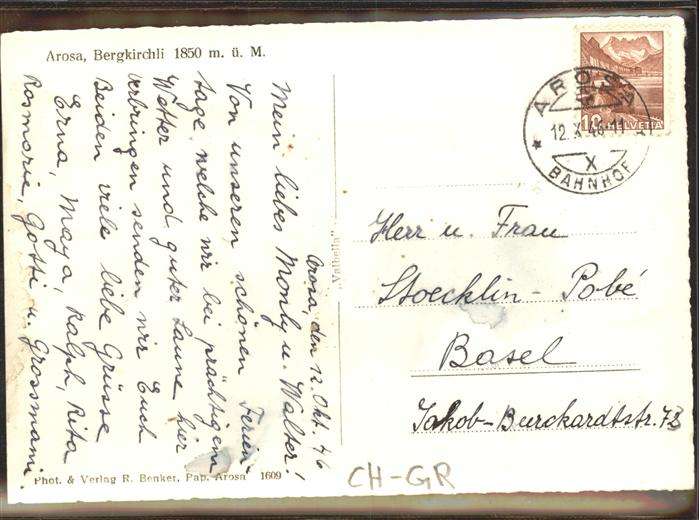 Arosa, Bergkirchli 1850 m. ü. M.
Arosa, den 12. Okt. 46
Mein liebes Monly u. Walter!
Von unseren schönen Ferien-
tage, welche wir bei prächtigem
Wetter und guter Laune hier
verbringen senden wir Euch
Beiden viele liebe Grüsse
Erna, Maya, Ralph, Rita
Rosmarie, Gotti u. Grossmami.
Phot. & Verlag R. Benker, Pap. Arosa 1609
10 HELVETIA
AROSA
12.X.46-11
X
BAHNHOF
Herr u. Frau
Stoecklin-Pobé
Basel
Jakob-Burckardtstr. 73
CH-GR